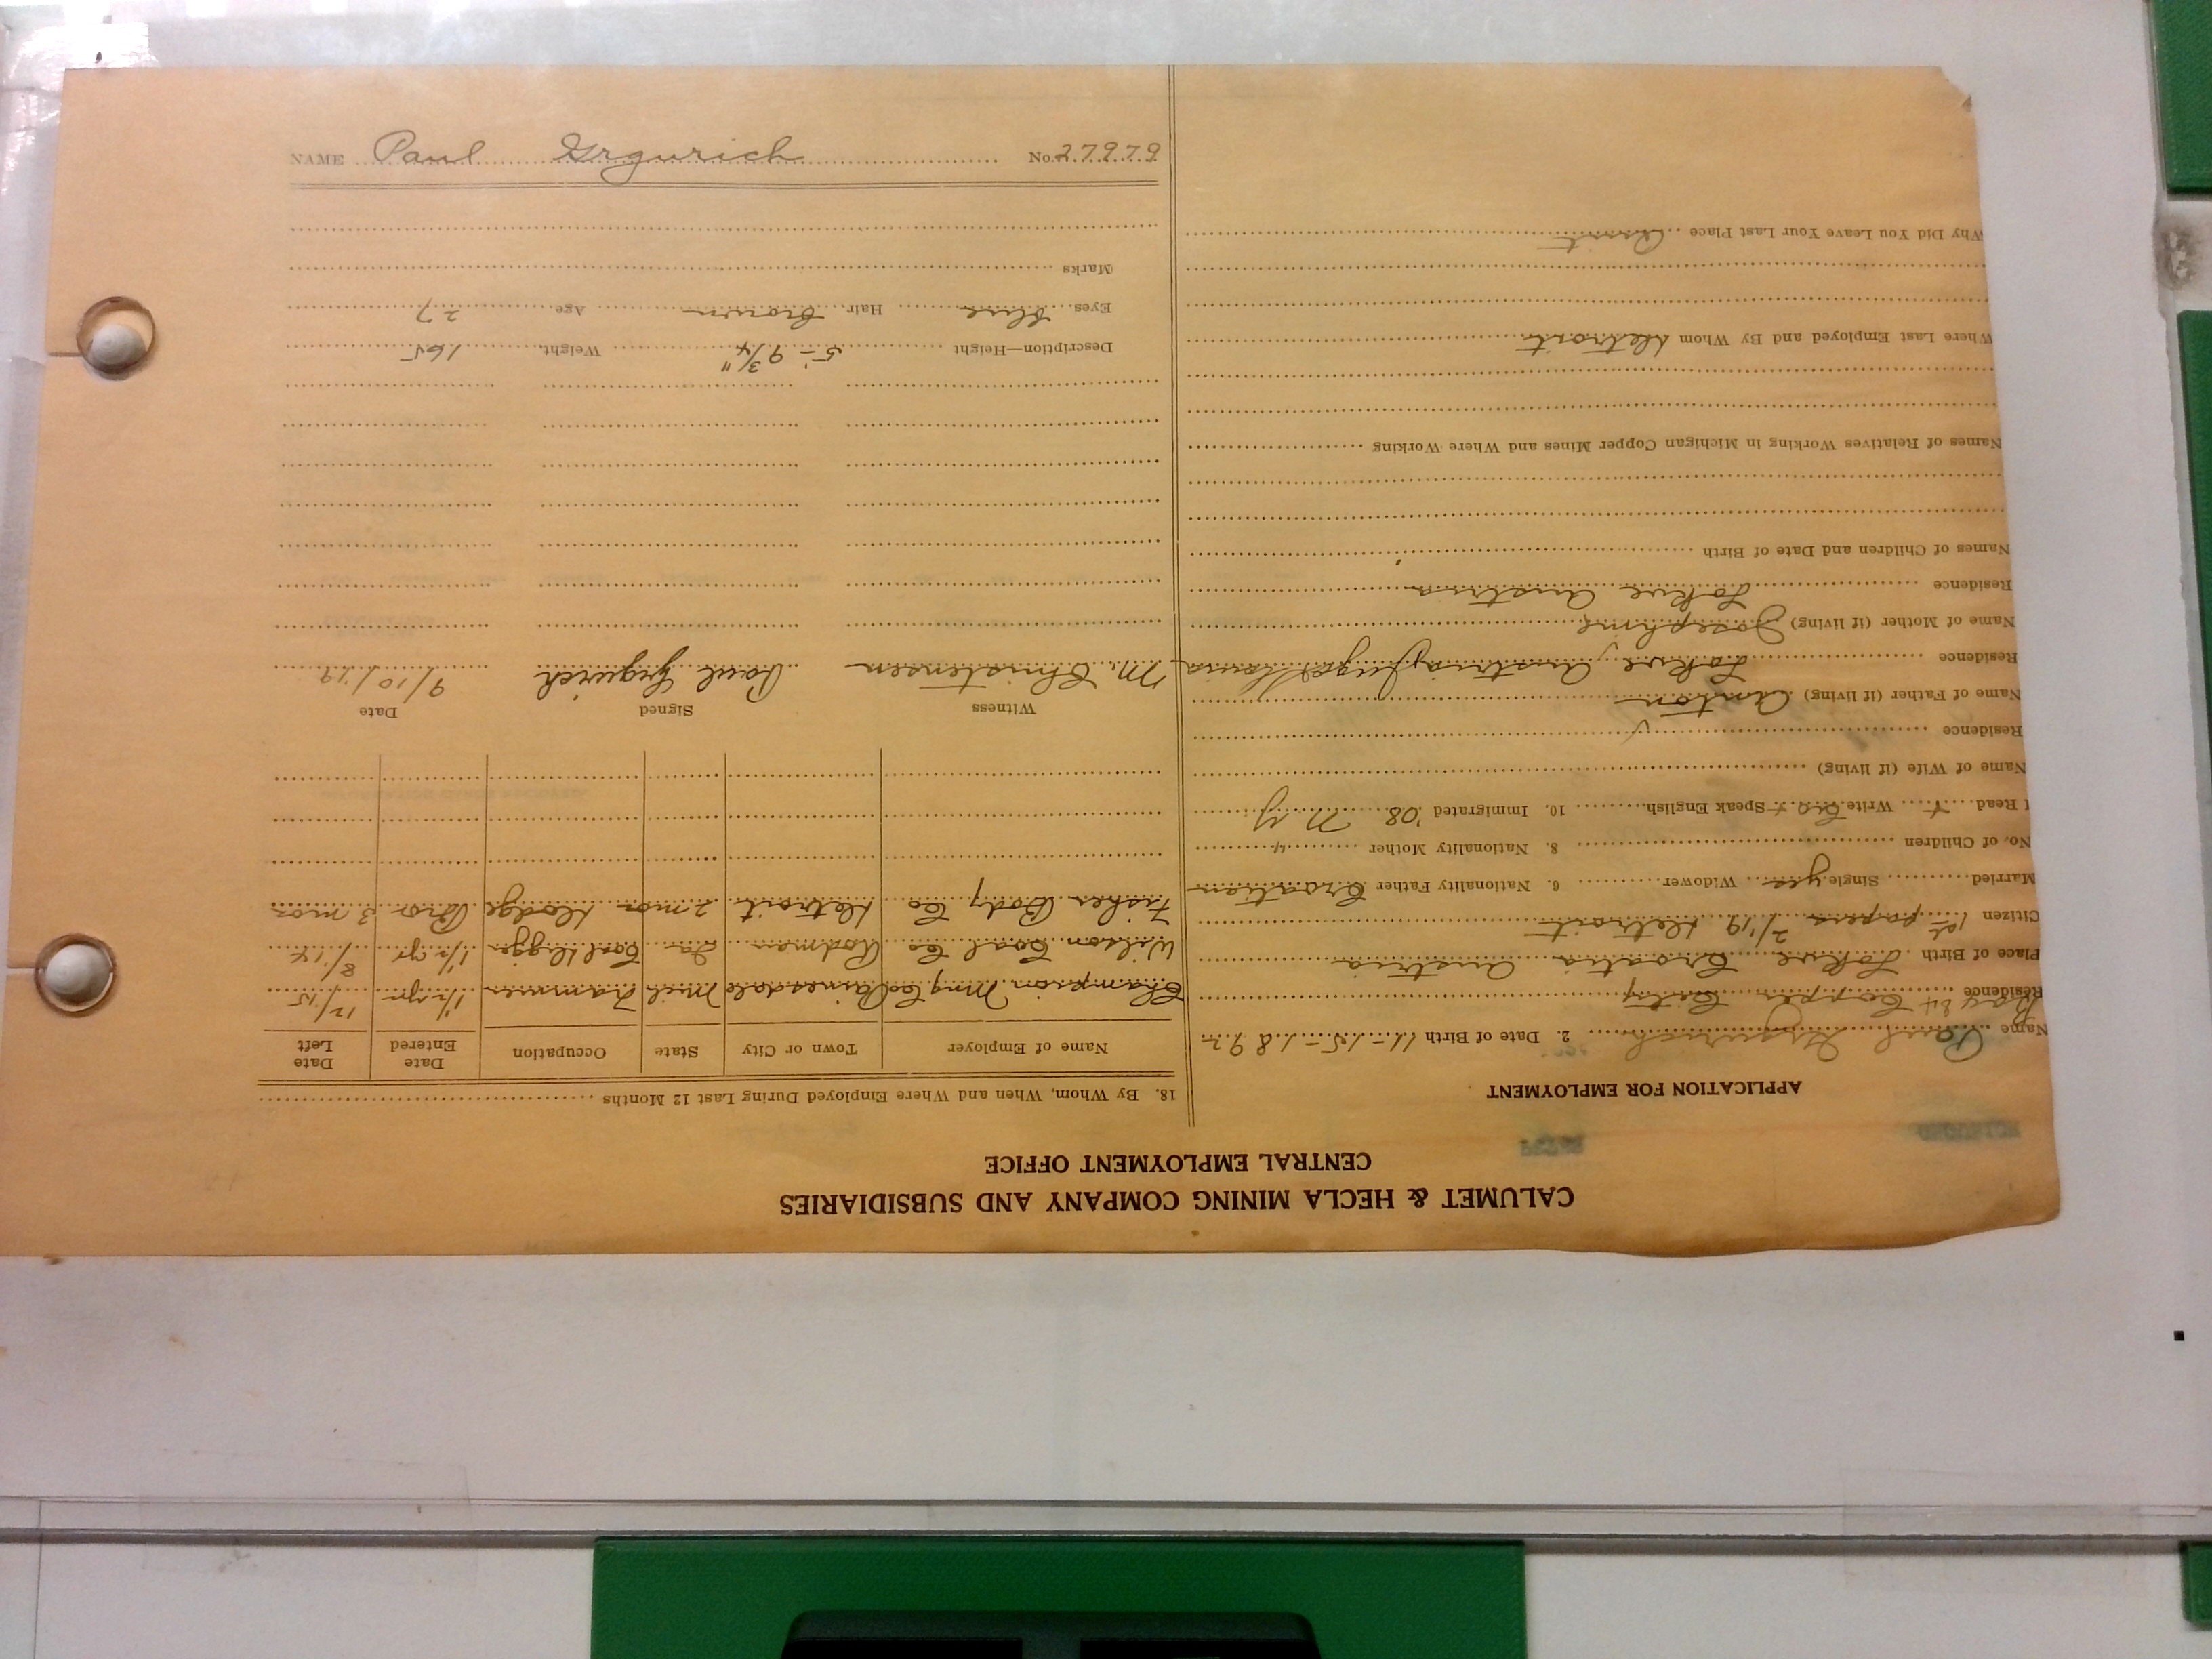 CALUMET & HECLA MINING COMPANY AND SUBSIDIARIES
CENTRAL EMPLOYMENT OFFICE
APPLICATION FOR EMPLOYMENT
Name Paul Grgurich 2. Date of Birth 11-15-1892
Residence Box 84 Copper City
Place of Birth Lokve Croatia Austria
Citizen 1st papers 2/19 Detroit
Married Single yes Widower 6. Nationality Father Croatian
No. of Children 8. Nationality Mother "
Read + Write Cro + Speak English 10. Immigrated '08 N Y
Name of Wife (if living)
Residence
Name of Father (if living) Anton
Residence Lokve, Austria
Name of Mother (if living) Josephine
Residence Lokve Austria
Names of Children and Date of Birth
Names of Relatives Working in Michigan Copper Mines and Where Working
Where Last Employed and By Whom Detroit
Why Did You Leave Your Last Place
18. By Whom, When and Where Employed During Last 12 Months
Name of Employer Town or City State Occupation Date Entered Date Left
Champion Mng Co Painesdale Mich Trammer 1½ yr 12/15
Wilson Coal Co Rodman Ia Coal Digger 1½ yr 8/14
Fisher Body Co Detroit 2 mos Dodge Bro 3 mos
Witness Signed Date
M. Christensen Paul Grgurich 9/10/19
Description—Height 5'-9 3/4" Weight 165
Eyes Blue Hair Brown Age 27
Marks
NAME Paul Grgurich No. 27979